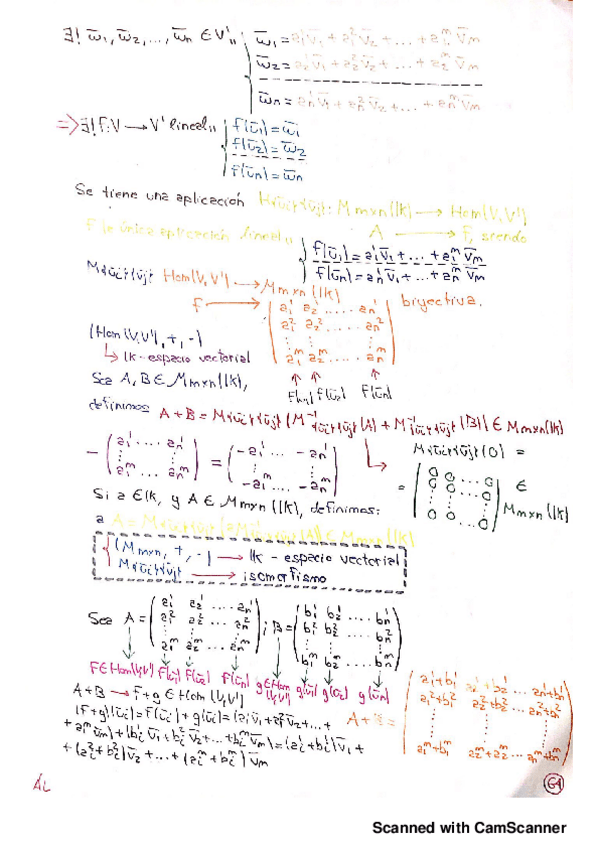 ∃! w̄₁, w̄₂, ..., w̄n ∈ V'
w̄₁ = a₁¹v̄₁ + a₁²v̄₂ + ... + a₁ᵐv̄m
w̄₂ = a₂¹v̄₁ + a₂²v̄₂ + ... + a₂ᵐv̄m
w̄n = an¹v̄₁ + an²v̄₂ + ... + anᵐv̄m
⇒ ∃! f: V → V' lineal
f(ū₁) = w̄₁
f(ū₂) = w̄₂
f(ūn) = w̄n
Se tiene una aplicación H{ūi}{v̄j}: Mmxn(lk) → Hom(V,V')
A → f, siendo
f la única aplicación lineal
f(ū₁) = a₁¹v̄₁ + ... + a₁ᵐv̄m
f(ūn) = an¹v̄₁ + ... + anᵐv̄m
M{ūi}{v̄j} Hom(V,V') → Mmxn(lk) biyectiva.
f → ( a₁¹ a₂¹ ..... an¹
a₁² a₂² ..... an²
a₁ᵐ a₂ᵐ ... anᵐ )
(Hom(V,V'), +, ·)
↳ lk-espacio vectorial
f(ū₁) f(ū₂) f(ūn)
Sea A, B ∈ Mmxn(lk),
definimos A+B = M{ūi}{v̄j}(M⁻¹{ūi}{v̄j}(A) + M⁻¹{ūi}{v̄j}(B)) ∈ Mmxn(lk)
- ( a₁¹ .... an¹ ⋮ ⋮ a₁ᵐ ... anᵐ ) = ( -a₁¹ ... -an¹ ⋮ ⋮ -a₁ᵐ .... -anᵐ )
M{ūi}{v̄j}(0) =
= ( 0 0 ... 0 ⋮ 0 0 ... 0 ) ∈ Mmxn(lk)
Si a ∈ lk, y A ∈ Mmxn(lk), definimos:
a A = M{ūi}{v̄j}(a M⁻¹{ūi}{v̄j}(A)) ∈ Mmxn(lk)
(Mmxn, +, ·) → lk - espacio vectorial
M{ūi}{v̄j} → isomorfismo
Sea A = ( a₁¹ a₂¹ .... an¹
a₁² a₂² ... an²
a₁ᵐ a₂ᵐ ... anᵐ ) ; B = ( b₁¹ b₂¹ .... bn¹
b₁² b₂² ... bn²
b₁ᵐ b₂ᵐ ... bnᵐ )
f∈Hom(V,V') f(ū₁) f(ū₂) f(ūn) g∈Hom(V,V') g(ū₁) g(ū₂) g(ūn)
A+B → f+g ∈ Hom(V,V')
(f+g)(ūi) = f(ūi) + g(ūi) = (ai¹v̄₁ + ai²v̄₂ + ... +
+ aiᵐv̄m) + (bi¹v̄₁ + bi²v̄₂ + ... + biᵐv̄m) = (ai¹+bi¹)v̄₁ +
+ (ai²+bi²)v̄₂ + ... + (aiᵐ+biᵐ)v̄m
A+B = ( a₁¹+b₁¹ a₂¹+b₂¹ ... an¹+bn¹
a₁²+b₁² a₂²+b₂² ... an²+bn²
a₁ᵐ+b₁ᵐ a₂ᵐ+b₂ᵐ ... anᵐ+bnᵐ )
AL
61
Scanned with CamScanner